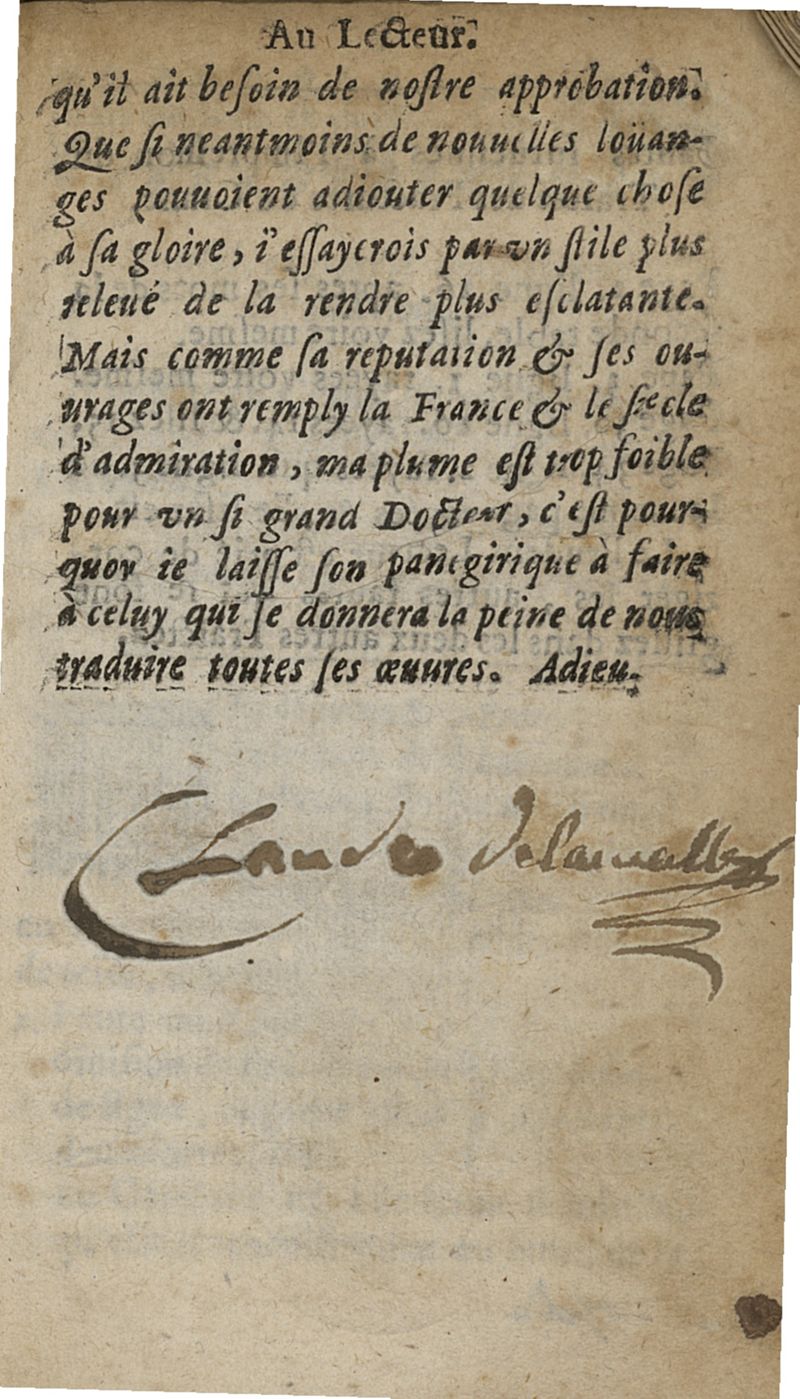 Au Lecteur.
qu'il ait beſoin de noſtre approbation.
Que ſi neantmoins de nouuelles loüan-
ges pouuoient adiouter quelque choſe
à ſa gloire, i'eſſayerois par vn ſtile plus
releué de la rendre plus eſclatante.
Mais comme ſa reputation & ſes ou-
urages ont remply la France & le ſiecle
d'admiration, ma plume eſt trop foible
pour vn ſi grand Docteur, c'eſt pour-
quoy ie laiſſe ſon panegirique à faire
à celuy qui ſe donnera la peine de nous
traduire toutes ſes œuures. Adieu.
Claude